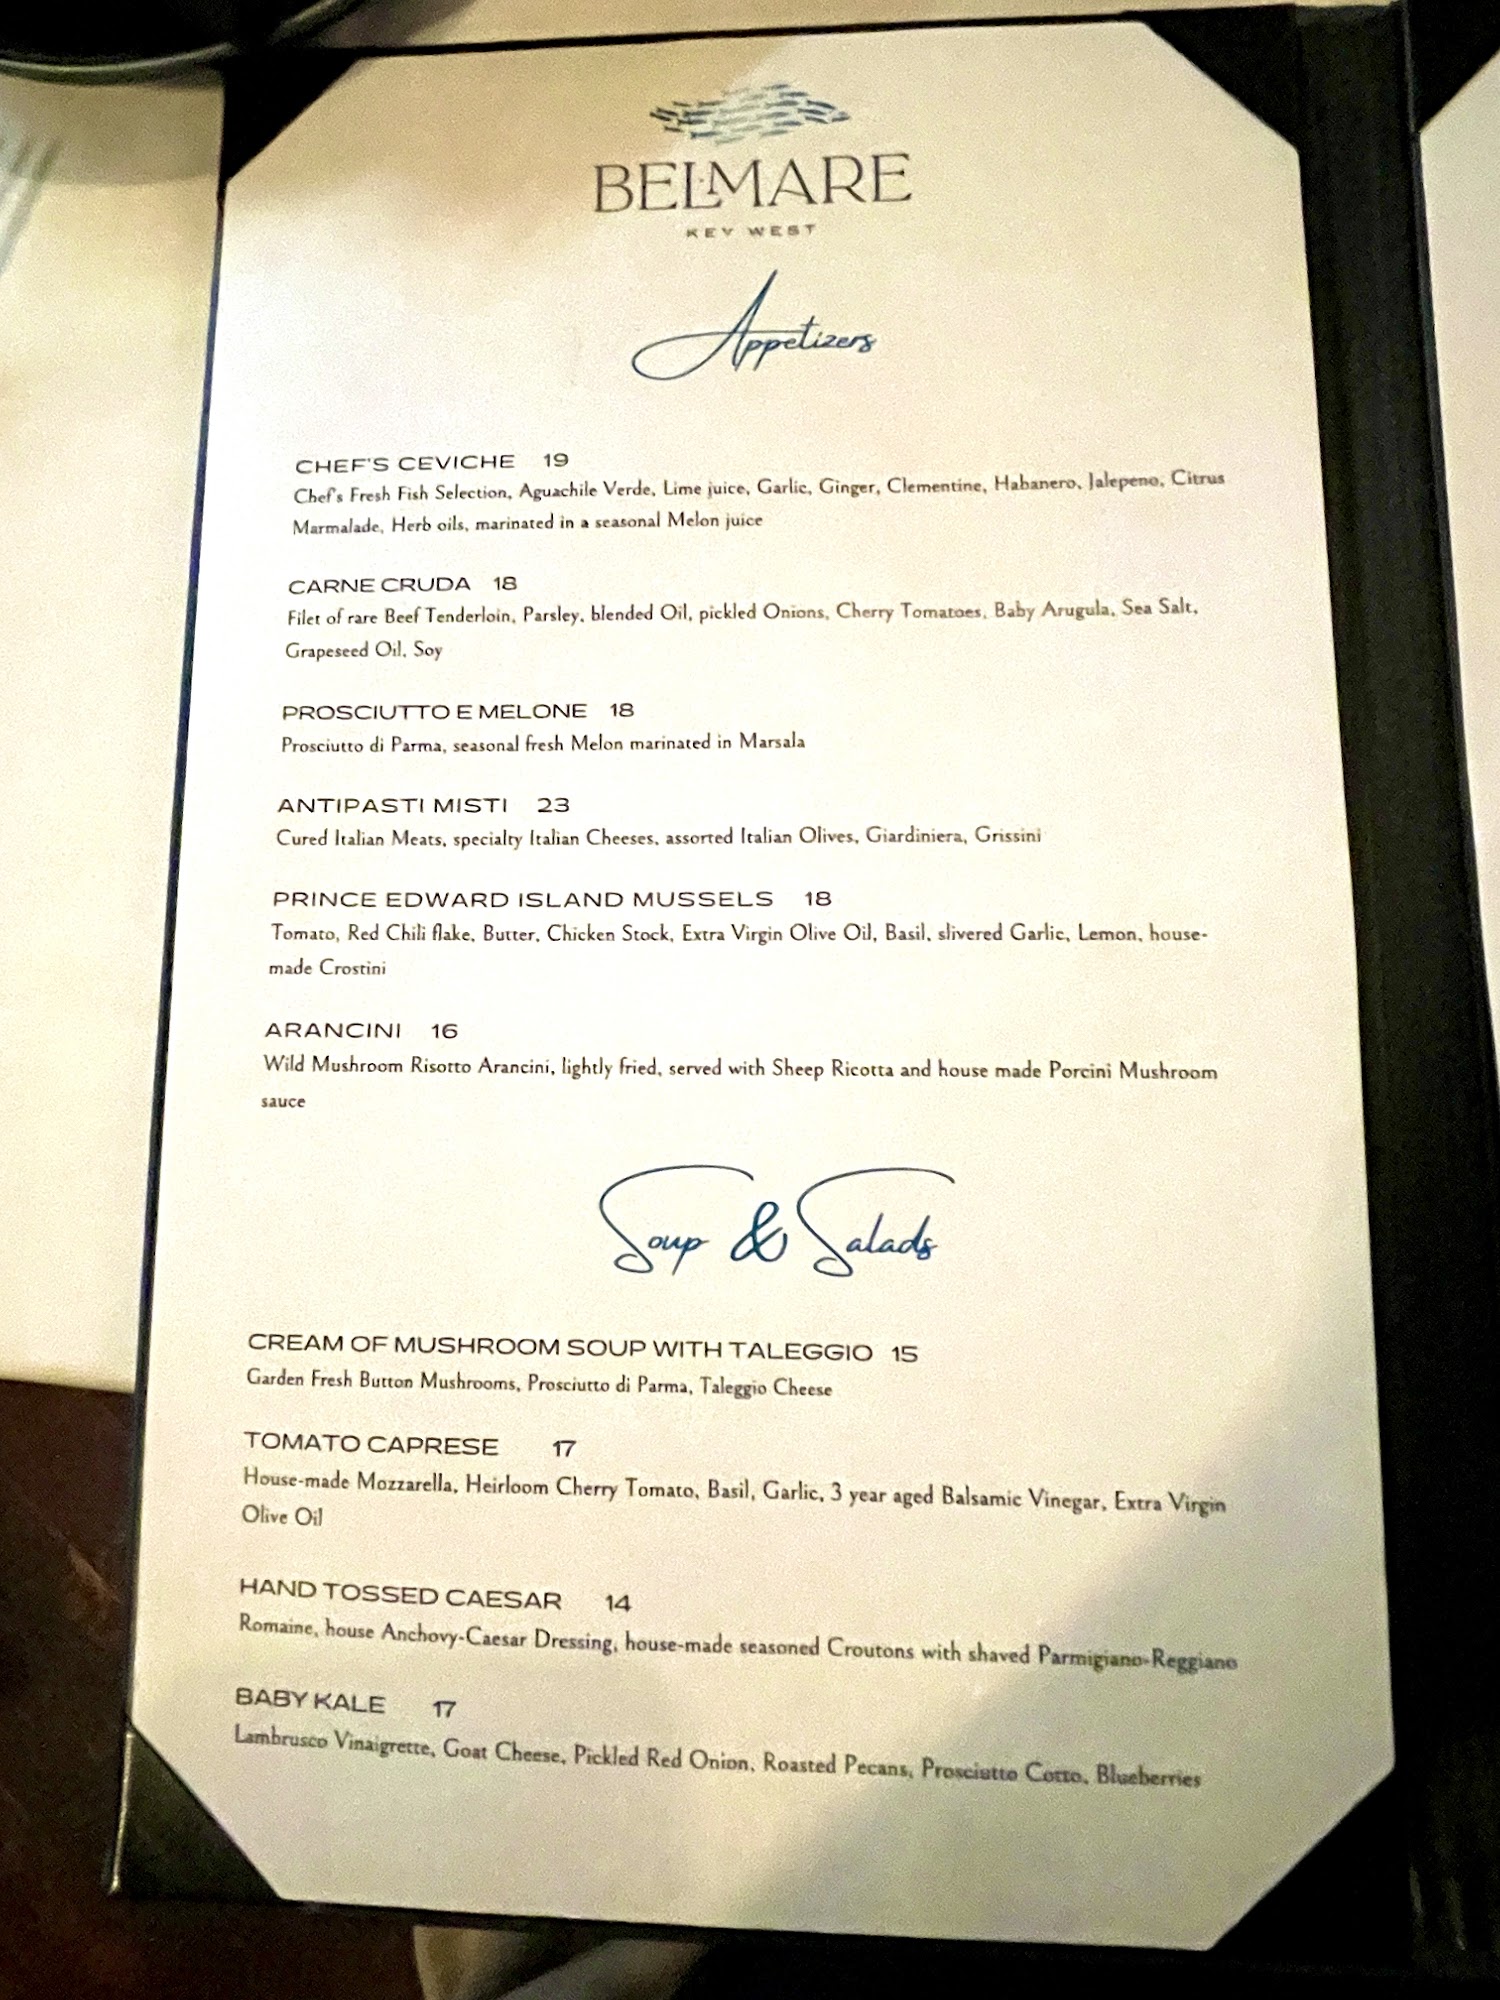 BELMARE
KEY WEST
Appetizers
CHEF'S CEVICHE 19
Chef's Fresh Fish Selection, Aguachile Verde, Lime juice, Garlic, Ginger, Clementine, Habanero, Jalepeno, Citrus
Marmalade, Herb oils, marinated in a seasonal Melon juice
CARNE CRUDA 18
Filet of rare Beef Tenderloin, Parsley, blended Oil, pickled Onions, Cherry Tomatoes, Baby Arugula, Sea Salt,
Grapeseed Oil, Soy
PROSCIUTTO E MELONE 18
Prosciutto di Parma, seasonal fresh Melon marinated in Marsala
ANTIPASTI MISTI 23
Cured Italian Meats, specialty Italian Cheeses, assorted Italian Olives, Giardiniera, Grissini
PRINCE EDWARD ISLAND MUSSELS 18
Tomato, Red Chili flake, Butter, Chicken Stock, Extra Virgin Olive Oil, Basil, slivered Garlic, Lemon, house-
made Crostini
ARANCINI 16
Wild Mushroom Risotto Arancini, lightly fried, served with Sheep Ricotta and house made Porcini Mushroom
sauce
Soup & Salads
CREAM OF MUSHROOM SOUP WITH TALEGGIO 15
Garden Fresh Button Mushrooms, Prosciutto di Parma, Taleggio Cheese
TOMATO CAPRESE 17
House-made Mozzarella, Heirloom Cherry Tomato, Basil, Garlic, 3 year aged Balsamic Vinegar, Extra Virgin
Olive Oil
HAND TOSSED CAESAR 14
Romaine, house Anchovy-Caesar Dressing, house-made seasoned Croutons with shaved Parmigiano-Reggiano
BABY KALE 17
Lambrusco Vinaigrette, Goat Cheese, Pickled Red Onion, Roasted Pecans, Prosciutto Cotto, Blueberries